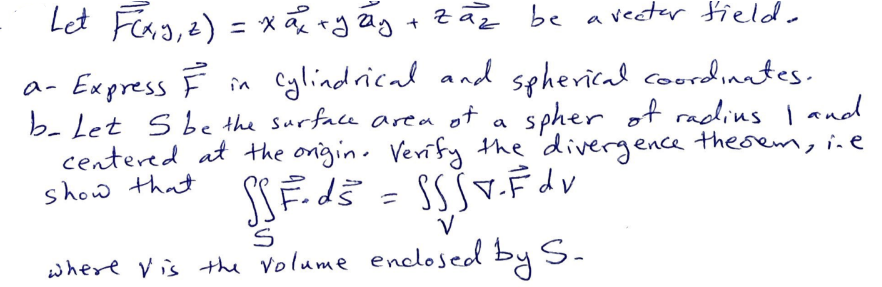 Let F⃗(x,y,z) = x a⃗x + y a⃗y + z a⃗z be a vector field.
a- Express F⃗ in cylindrical and spherical coordinates.
b- Let S be the surface area of a spher of radius 1 and
centered at the origin. Verify the divergence theorem, i.e
show that ∬_S F⃗·dS⃗ = ∭_V ∇·F⃗ dv
where V is the volume enclosed by S.